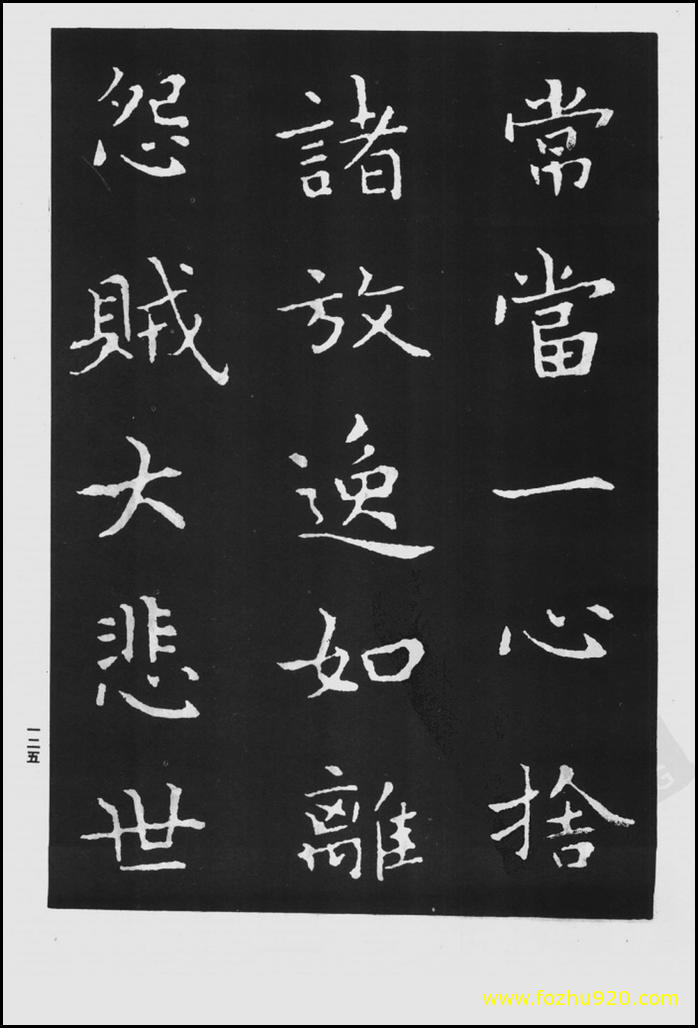 常當一心捨
諸放逸如離
怨賊大悲世
一二五
www.fozhu920.com